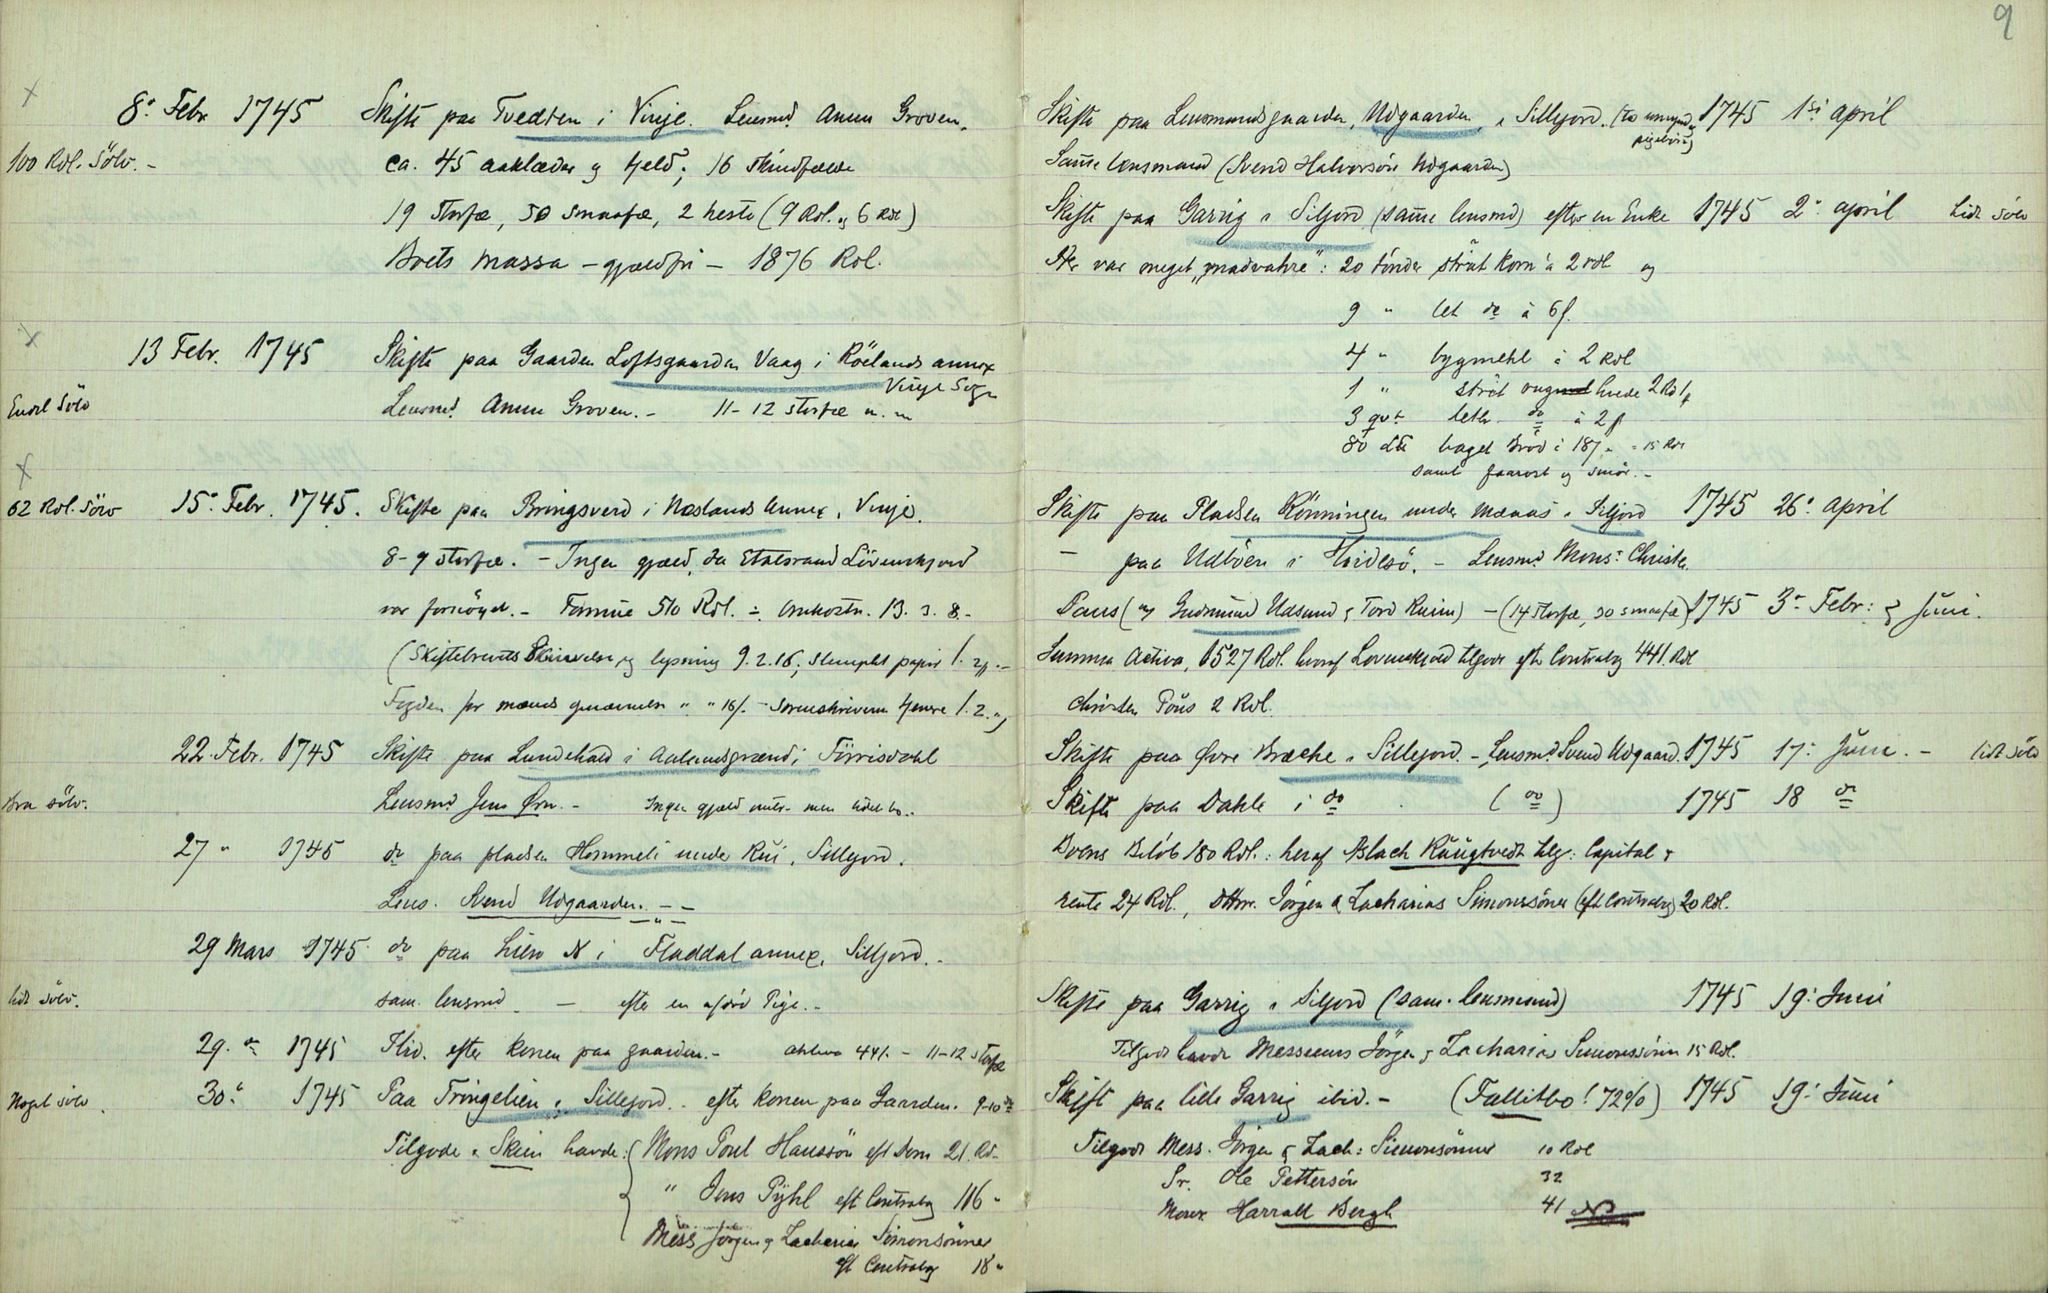 8de Febr 1745 Skifte paa Tvedten i Vinje. Lensmd. Anun Groven.
100 Rdl. Sölv. - ca. 45 aaklæder og tjeld; 16 skindfælde
19 storfæ, 50 smaafæ, 2 heste (9 Rdl. og 6 Rdl)
Boets massa - gjældfri - 1876 Rdl.
13 Febr. 1745 Skifte paa Gaarden Loftsgaarden Vaag i Röelands annex
Vinje Sogn
Endel Sölv Lensmd. Anun Groven. - 11-12 storfæ m. m
62 Rdl. Sölv 15de Febr. 1745. Skifte paa Bringsverd i Næslands Annex, Vinje.
8-9 storfæ. - Ingen gjæld, da Etatsraad Lövenskjold
var fornöyet. - Formue 510 Rdl. ÷ Omkostn. 13. 3. 8. -
(Skiftebrevets Skrivelse og lysning 9. 2. 16, stemplet papir 1. 24. -
Fogden for mænds 16/. - Sorenskriveren 1. 2. ")
22. Febr. 1745 Skifte paa Lundekald i Aalandsgrænd i Törrisdahl
Bra sölv. Lensmd Jens Örn. - Ingen gjæld men lidet bo..
27 " 1745 do paa pladsen Hommeli under Rui, Sillejord.
Lens. Svend Udgaarden. - " -
29 Mars 1745 do paa Lien N i Fladdal annex, Silljord. -
lidt sölv. sam. lensmd. - efter en afdöd Pige. -
29. do 1745 Ibid. efter konen paa gaarden. - 441. - 11-12 storfæ
Noget sölv. 30te 1745 Paa Tringelien i Sillejord.. efter konen paa Gaarden. 9-10 do
Tilgode i Skien havde: Mons Poul Hanssön eft Dom 21 Rd.
" Jens Pyhl eft Contrabog 116 "
Mess Jörgen og Zacharias Simonsönner
eft Contrabog 18 "
9
Skifte paa Lensmandsgaarden, Udgaarden, i Sillejord. (To 1745 1ste April
Samme lensmand (Svend Halvorsön Udgaarden)
Skifte paa Garvig i Siljord (samme lensmd) efter en Enke 1745 2de april Lidt sölv
Der var meget "madvahre": 20 tönder ströt korn a 2 rdl og
9 " let do à 6 f.
4 " bygmehl à 2 Rdl
1 " ströt rugmel hvede 2 Rdl
3 qvt lettere do à 2 f
80 baget Bröd = 15 Rdl
samt faarost og smör. -
Skifte paa Pladsen Könningen under Mænaas i Siljord 1745 26de April
- paa Udböen i Hvidesö. - Lensmd Mons: Christen
Paus (og Gudmund Udsund & Tord Ruim) - (14 storfæ, 30 smaafæ) 1745 3de Febr: & Juni.
Summa Activa, 1527 Rdl. hvoraf Lovenskjold tilgode eft Contrabog 441 Rdl
Christen Pöus 2 Rdl.
Skifte paa Øvre Brække i Sillejord. - Lensmd. Svend Udgaard. 1745 17de Juni. - lidt sölv
Skifte paa Dahle i do (do) 1745 18 do
Boens Belöb 180 Rdl.: heraf Aslach Röugtvedt tilg: Capital &
rente 24 Rdl., Jörgen & Zacharias Simonssöner (eft Contrabog) 20 Rdl.
Skifte paa Garvig i Siljord (sam. lensmand) 1745 19de Juni
Tilgode havde Messieurs Jörgen & Zacharias Simonssönner 15 Rdl.
Skift paa lille Garvig ibid. - (Fallitbo! 72%) 1745 19de Juni
Tilgode Mess. Jörgen & Zach: Simonsönner 10 Rdl
Sr. Ole Pettersön 32
Monsr Harrald Bergh 41